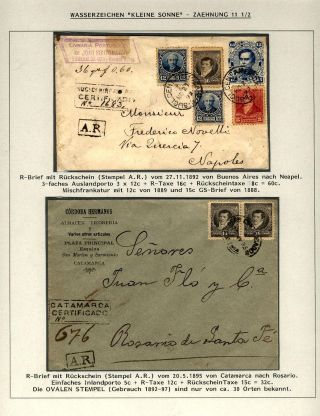 WASSERZEICHEN "KLEINE SONNE" - ZAEHNUNG 11 1/2
36 gr f 0.60.
CERTIFICADO
No. 1683.
A.R.
Monsieur
Federico Novelli
Via Quercia 7
Napoles
R-Brief mit Rückschein (Stempel A.R.) vom 27.11.1892 von Buenos Aires nach Neapel.
3-faches Auslandporto 3 x 12c + R-Taxe 16c + Rückscheintaxe 8c = 60c.
Mischfrankatur mit 12c von 1889 und 15c GS-Brief von 1888.
CÓRDOBA HERMANOS
ALMACEN
Varios otros artículos
PLAZA PRINCIPAL
Esquina
San Martin y Sarmiento
CATAMARCA
CATAMARCA
CERTIFICADO
No.
676
A.R.
Juan Fló y Ca
Rosario de Santa Fé
R-Brief mit Rückschein (Stempel A.R.) vom 20.5.1895 von Catamarca nach Rosario.
Einfaches Inlandporto 5c + R-Taxe 12c + RückscheinTaxe 15c = 32c.
Die OVALEN STEMPEL (Gebrauch 1892-97) sind nur von ca. 30 Orten bekannt.